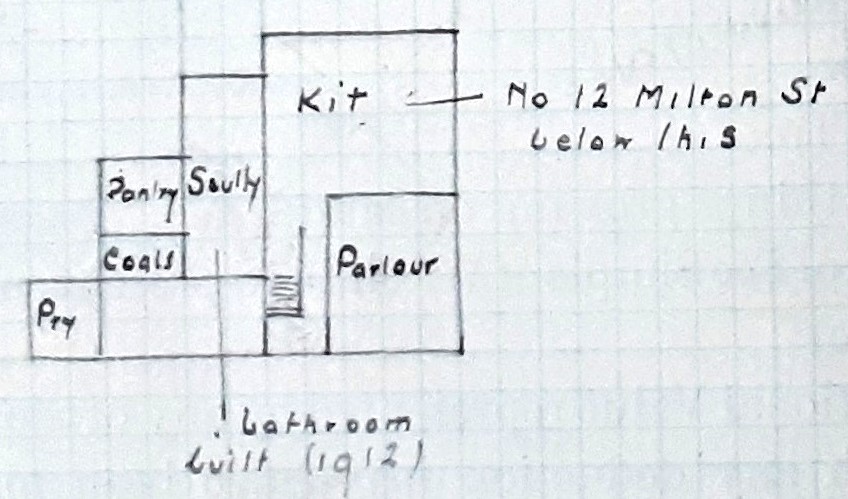 Kit
No 12 Milton St
below this
Pantry
Scully
Coals
Parlour
Pry
bathroom
built (1912)